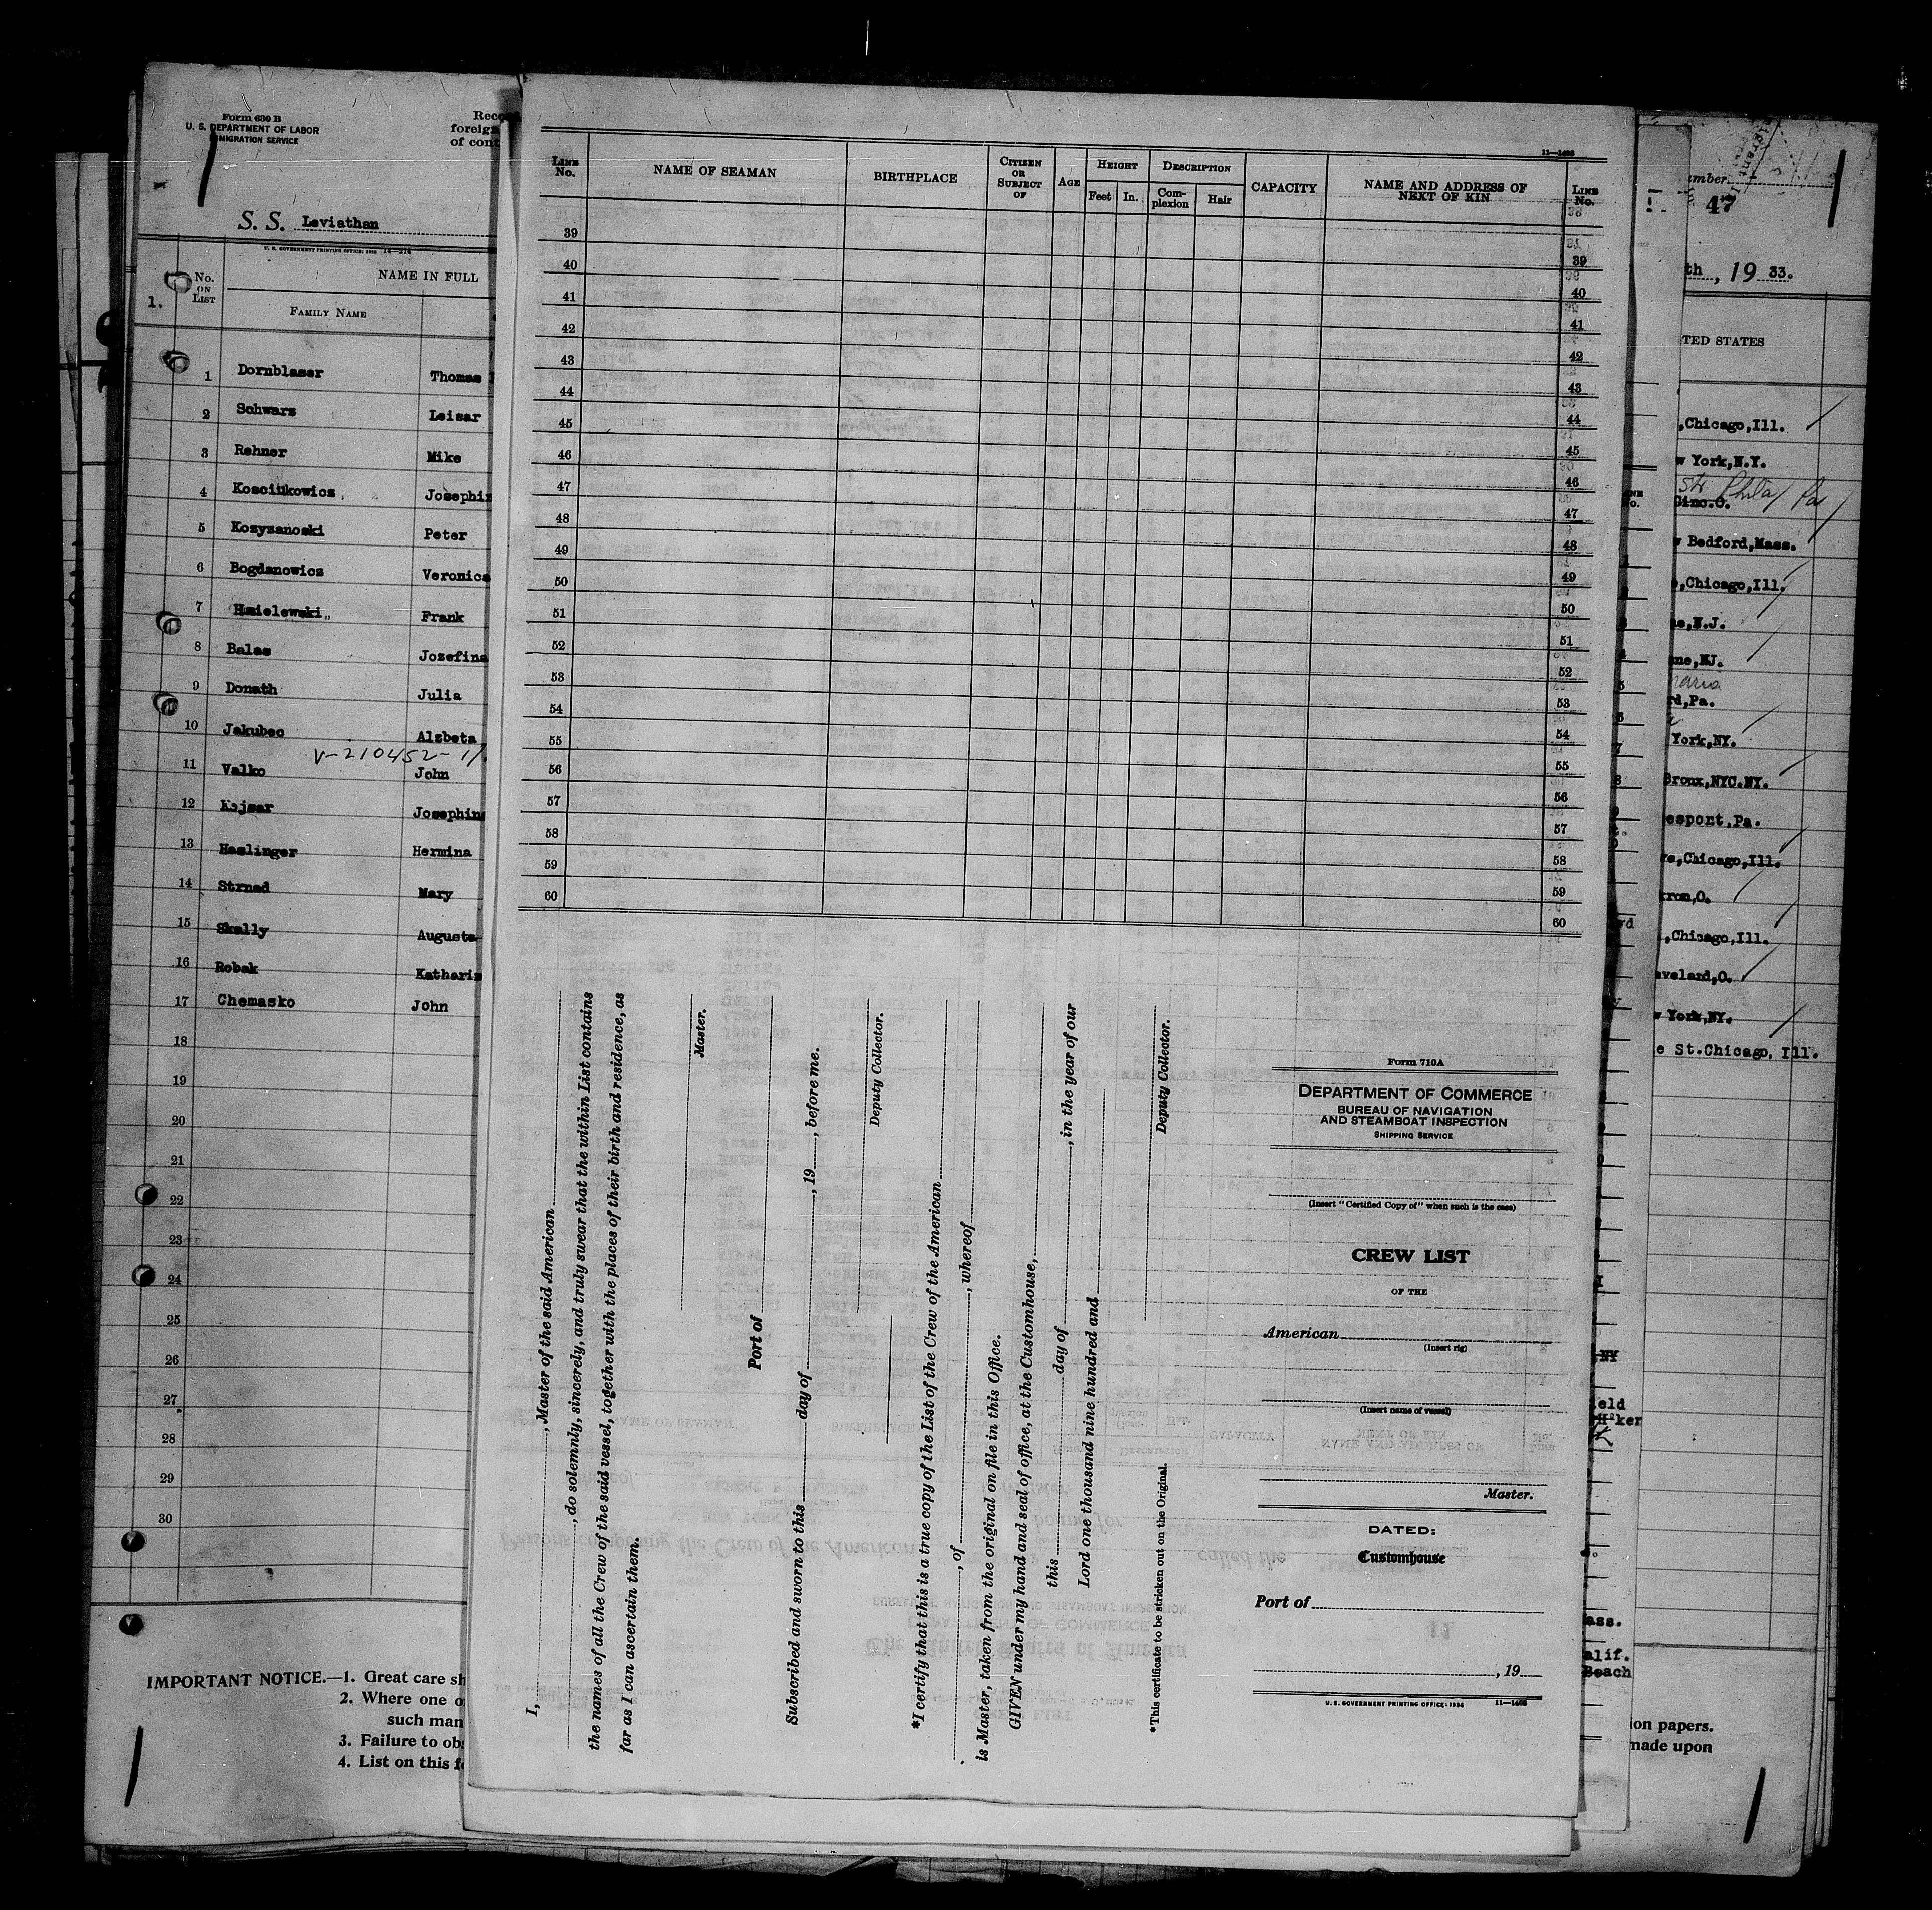 Form 630 B
U. S. DEPARTMENT OF LABOR
IMMIGRATION SERVICE
Reco
foreign
of cont
S. S. Leviathan
U. S. GOVERNMENT PRINTING OFFICE: 14—214
1.
No. ON LIST
NAME IN FULL
FAMILY NAME
1 Dornblaser Thomas
2 Schwarz Leisar
3 Rehner Mike
4 Kosciukowics Josephin
5 Kozyzanoski Peter
6 Bogdanowics Veronica
7 Hmielewski Frank
8 Balas Jozefina
9 Donath Julia
10 Jakubec Alzbeta
V-210452-1/
11 Valko John
12 Kajsar Josephine
13 Haslinger Hermina
14 Strnad Mary
15 Skally Augusta
16 Robak Katharin
17 Chemasko John
18
19
20
21
22
23
24
25
26
27
28
29
30
IMPORTANT NOTICE.—1. Great care sh
2. Where one o
such man
3. Failure to obs
4. List on this fo
11—1408
LINE No.
NAME OF SEAMAN
BIRTHPLACE
CITIZEN OR SUBJECT OF
AGE
HEIGHT
Feet In.
DESCRIPTION
Complexion Hair
CAPACITY
NAME AND ADDRESS OF NEXT OF KIN
LINE No.
39 39
40 40
41 41
42 42
43 43
44 44
45 45
46 46
47 47
48 48
49 49
50 50
51 51
52 52
53 53
54 54
55 55
56 56
57 57
58 58
59 59
60 60
I, , Master of the said American
, do solemnly, sincerely, and truly swear that the within List contains
the names of all the Crew of the said vessel, together with the places of their birth and residence, as
far as I can ascertain them.
Master.
Port of
Subscribed and sworn to this day of , 19 , before me.
Deputy Collector.
*I certify that this is a true copy of the List of the Crew of the American
, of , whereof
is Master, taken from the original on file in this Office.
GIVEN under my hand and seal of office, at the Customhouse,
this day of , in the year of our
Lord one thousand nine hundred and
Deputy Collector.
*This certificate to be stricken out on the Original.
Form 710A
DEPARTMENT OF COMMERCE
BUREAU OF NAVIGATION
AND STEAMBOAT INSPECTION
SHIPPING SERVICE
(Insert "Certified Copy of" when such is the case)
CREW LIST
OF THE
American
(Insert rig)
(Insert name of vessel)
Master.
DATED:
Customhouse
Port of
, 19
U. S. GOVERNMENT PRINTING OFFICE: 1934 11—1408
mber
47
th , 19 33.
TED STATES
,Chicago,Ill.
w York,N.Y.
St Phila Pa
Cinc.O.
w Bedford,Mass.
,Chicago,Ill.
e,N.J.
ne,NJ.
rd,Pa.
York,NY.
Bronx,NYC.NY.
esport,Pa.
e,Chicago,Ill.
kron,O.
,Chicago,Ill.
eveland,O.
w York,NY.
e St.Chicago, Ill.
NY
eld
ker
ass.
alif.
Beach
on papers.
made upon